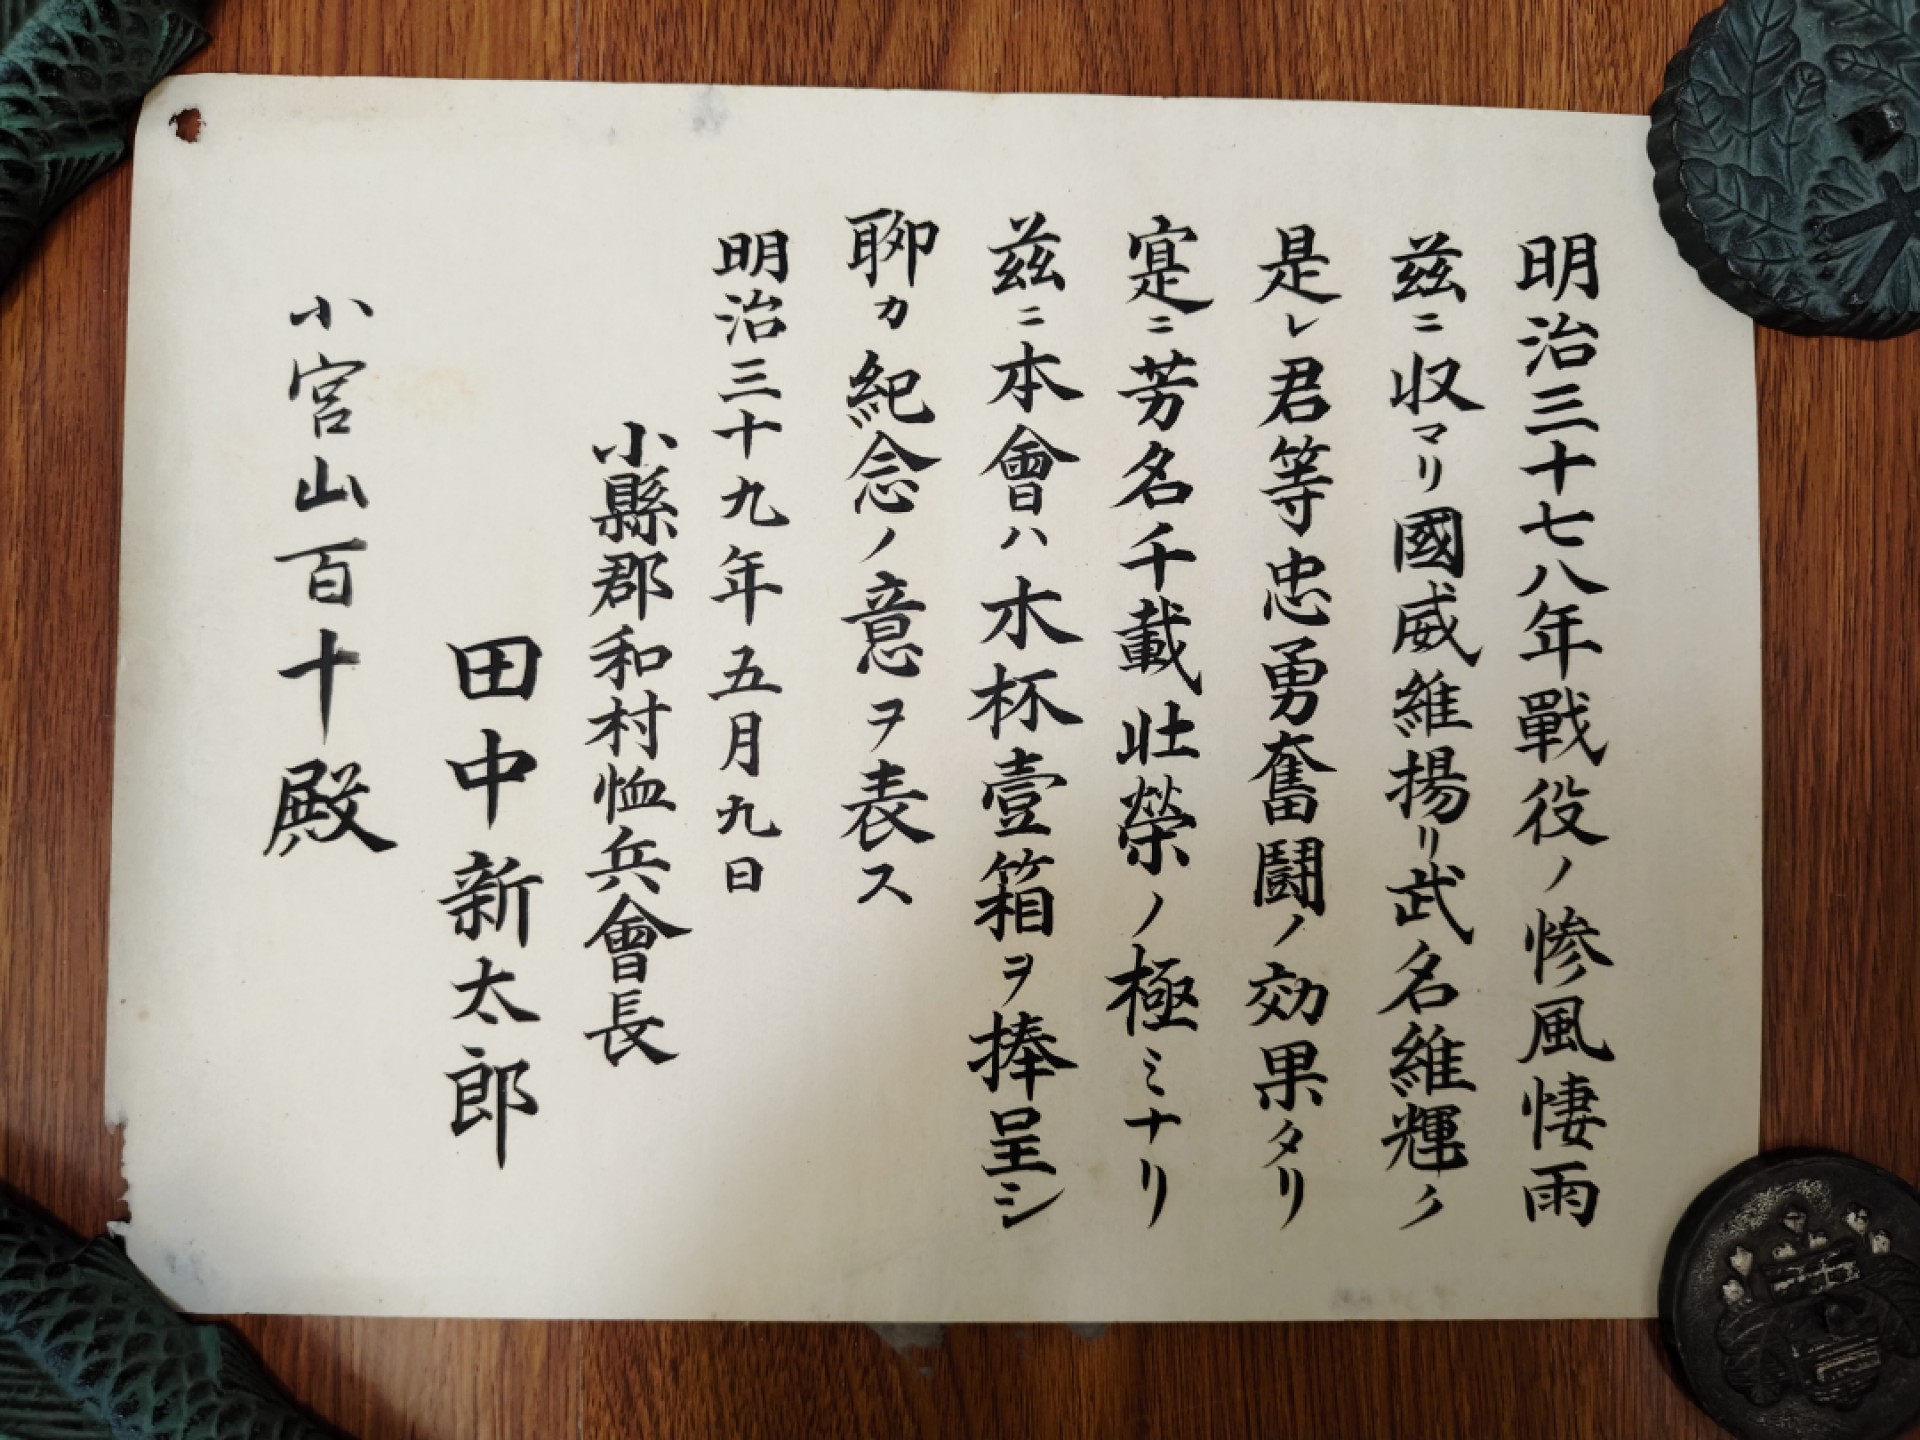 明治三十七八年戰役ノ惨風悽雨
茲ニ収マリ國威維揚リ武名維輝ク
是レ君等忠勇奮闘ノ効果タリ
寔ニ芳名千載壮榮ノ極ミナリ
茲ニ本會ハ木杯壹箱ヲ捧呈シ
聊カ紀念ノ意ヲ表ス
明治三十九年五月九日
小縣郡和村恤兵會長
田中新太郎
小宮山百十殿